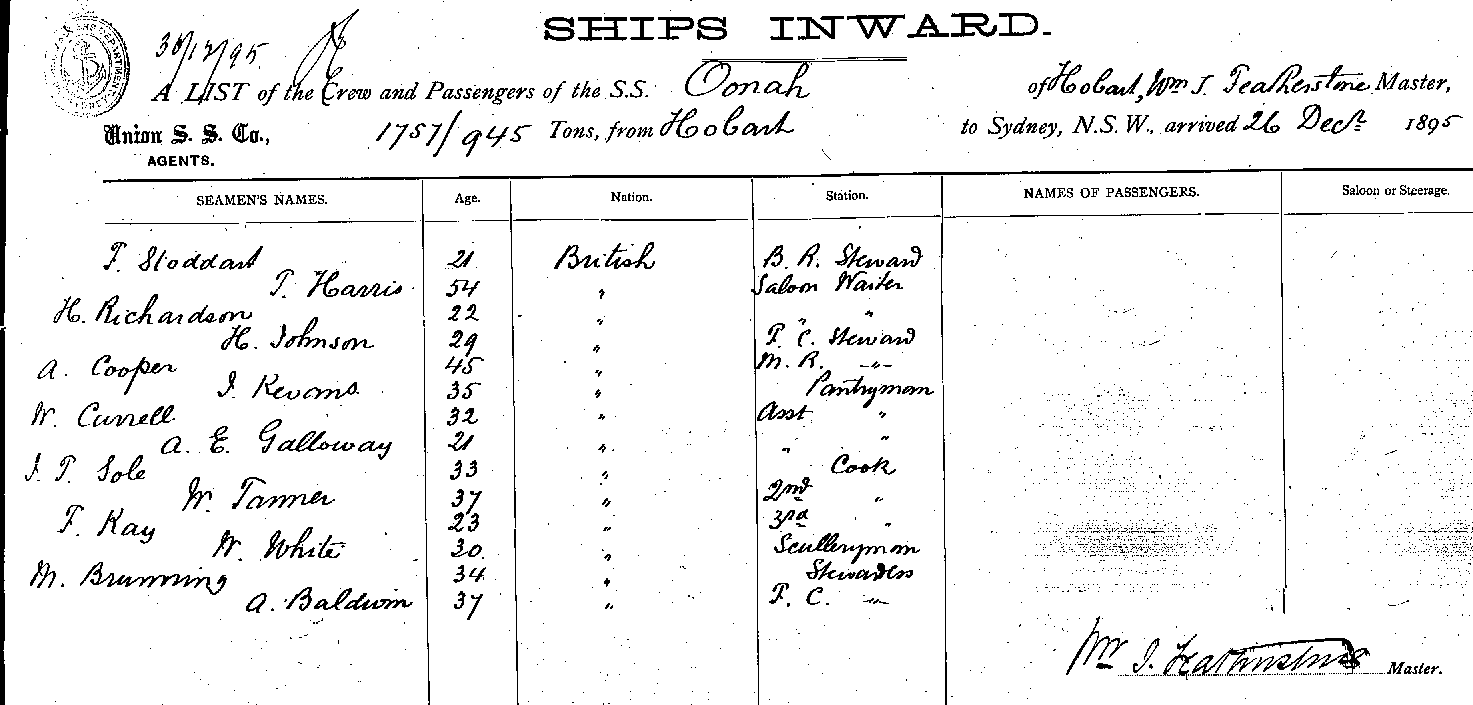 SHIPS INWARD.
30/12/95
A LIST of the Crew and Passengers of the S.S. Oonah of Hobart, Wm J. Featherstone Master,
Union S. S. Co., 1757/945 Tons, from Hobart to Sydney, N.S.W., arrived 26 Decr 1895
AGENTS.
SEAMEN'S NAMES. Age. Nation. Station. NAMES OF PASSENGERS. Saloon or Steerage.
F. Stoddart 21 British B. R. Steward
T. Harris 54 " Saloon Waiter
H. Richardson 22 " " "
H. Johnson 29 " F. C. Steward
A. Cooper 45 " M. R. "
J. Kevans 35 " Pantryman
W. Currell 32 " Asst "
A. E. Galloway 21 " " "
J. T. Sole 33 " Cook
W. Tanner 37 " 2nd "
F. Kay 23 " 3rd "
W. White 30 " Sculleryman
M. Brunning 34 " Stewardess
A. Baldwin 37 " F. C. "
Wm J. Featherstone Master.